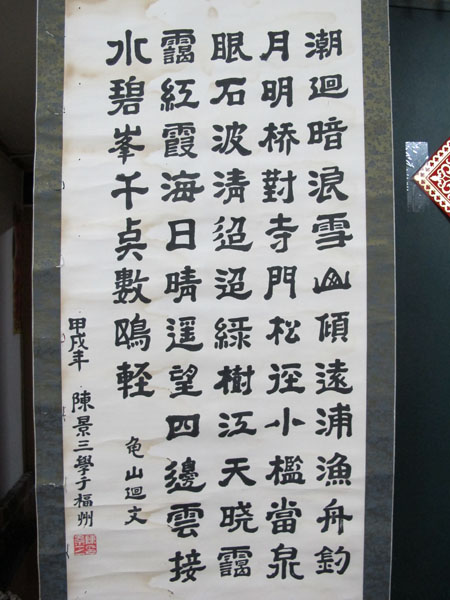 潮迴暗浪雪山傾遠浦漁舟釣
月明桥對寺門松徑小檻當泉
眼石波清迢迢綠樹江天晓靄
靄紅霞海日晴遥望四邊雲接
水碧峯千点數鴎軽
龟山迴文
甲戌年 陳景三學于福州